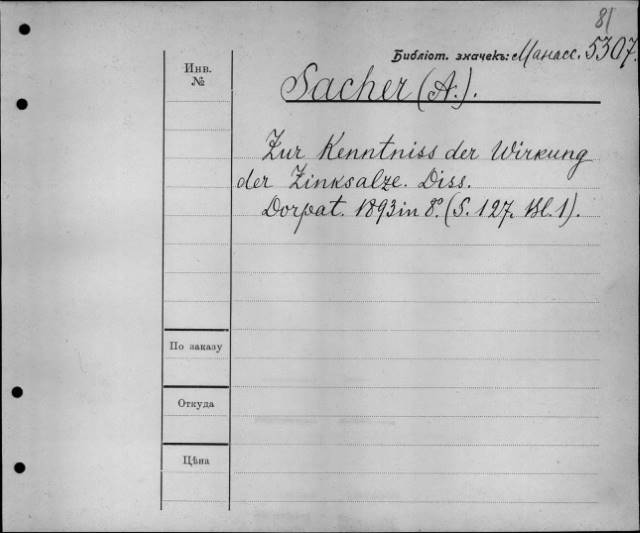 81
Библiот. значекъ: Манасс. 5307.
Инв.
№
Sacher (A.).
Zur Kenntniss der Wirkung
der Zinksalze. Diss.
Dorpat. 1893 in 8º. (S. 127. Bl. 1).
По заказу
Откуда
Цѣна